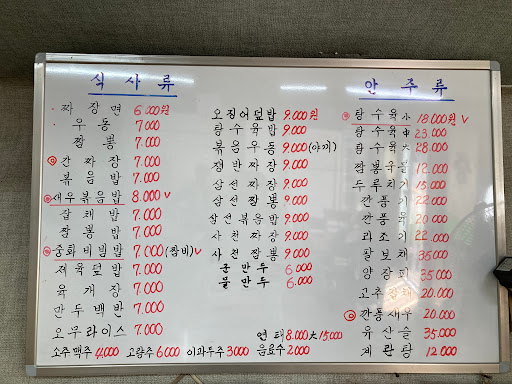 식사류
짜장면 6000원
우동 7.000
짬뽕 7.000
간짜장 7.000
볶음밥 7.000
새우볶음밥 8.000 v
잡채밥 7.000
짬뽕밥 7.000
중화비빔밥 7.000 (짬비) v
제육덮밥 7.000
육개장 7.000
만두백반 7.000
오무라이스 7.000
소주맥주 4.000 고량주 6000 이과두주 3000 음료수 2.000
오징어덮밥 9.000원
탕수육밥 9.000
볶음우동 9.000 (야끼)
쟁반짜장 9.000
삼선짜장 9.000
삼선짬뽕 9.000
삼선볶음밥 9.000
사천짜장 9.000
사천짬뽕 9.000
군만두 6.000
물만두 6.000
8.000 大 15000
안주류
탕수육 小 18.000원 v
탕수육 中 23.000
탕수육 大 28.000
짬뽕국물 12.000
두루치기 15.000
깐풍기 22.000
깐풍육 20.000
라조기 22.000
잡채 35.000
양장피 35.000
고추잡채 20.000
깐풍새우 20.000
유산슬 35.000
계란탕 12.000